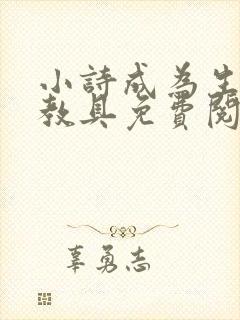 小詩成為生
教具免費閱
辜勇志